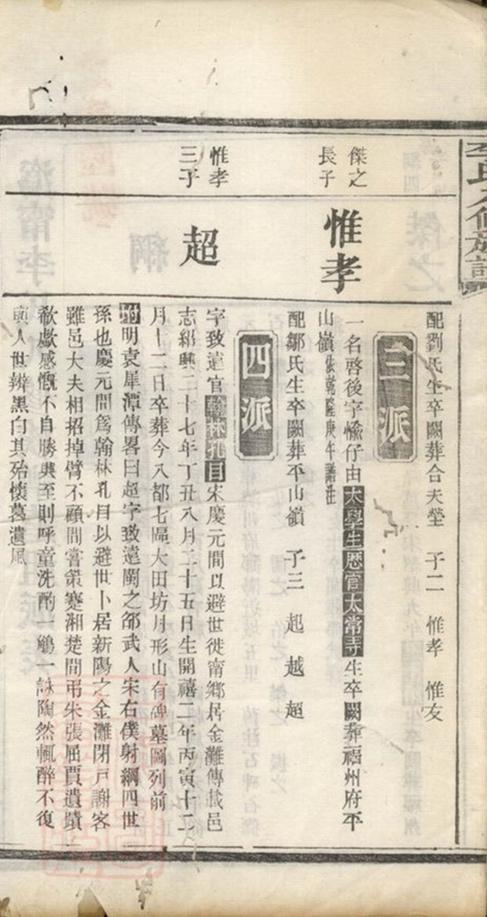 李氏八修族譜
配劉氏生卒闕葬合夫塋　子二　惟孝　惟友
三派
傑之
長子
惟孝
一名啓後字愉仔由太學生歴官太常寺生卒闕葬福州府平
山嶺
配鄒氏生卒闕葬平山嶺　子三　起　越　超
四派
惟孝
三子
超
字致遠官翰林孔目宋慶元間以避世徙甯鄉居金灘傳載邑
志紹興二十七年丁丑八月二十五日生開禧二年丙寅十二
月十二日卒葬今八都七區大田坊月形山有碑墓圖列前
附明袁犀潭傳畧曰超字致遠閩之邵武人宋右僕射綱四世
孫也慶元間爲翰林孔目以避世卜居新陽之金灘閉戸謝客
雖邑大夫相招掉臂不顧間嘗策蹇湘楚間弔朱張屈賈遺蹟
欷歔感慨不自勝興至則呼童洗酌一觴一詠陶然輒醉不復
與人世辨黑白其殆懷葛遺風